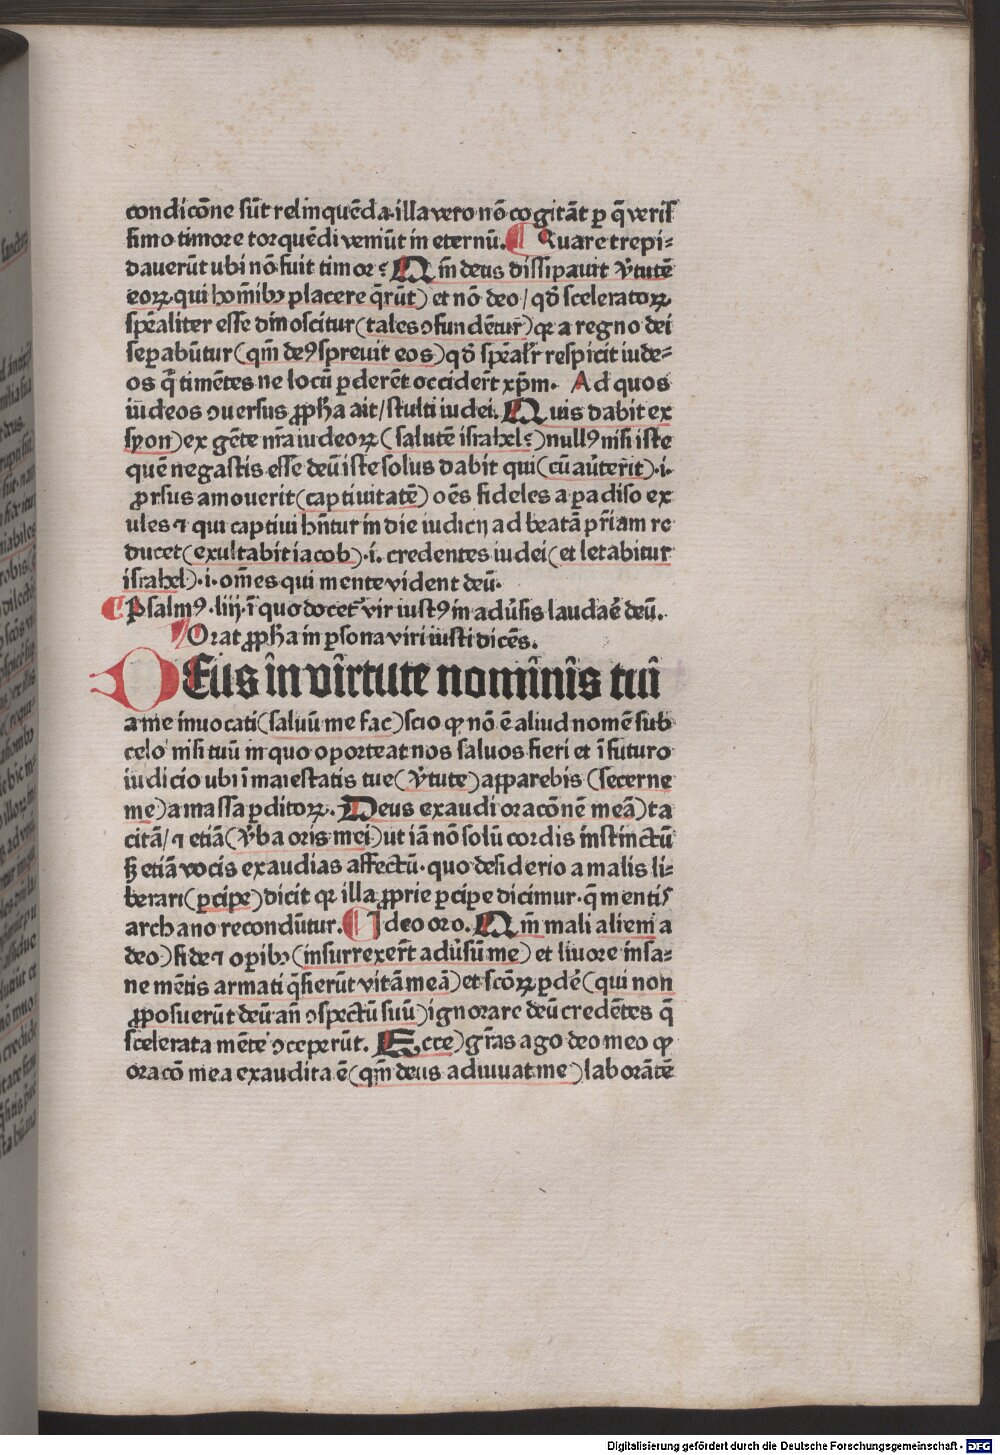 condicōne sūt relinquēda. illa vero nō cogitāt ꝑ q̄ veris
simo timore torquēdi veniūt in eternū. ¶ Quare trepi⸗
dauerūt ubi nō fuit timor: Qm̄ deus dissipauit v̄tutē
eoꝝ qui hom̄ibꝰ placere q̄rūt) et nō deo / qd̄ sceleratoꝝ
sp̄ealiter esse dinoscitur (tales ↄfundētur) qꝛ a regno dei
seꝑabūtur (qm̄ deꝰ spreuit eos) qd̄ sp̄ealr̄ respicit iude⸗
os q̄ timētes ne locū ꝑderēt occiderūt xp̄m. Ad quos
iudeos ↄuersus ꝓph̄a ait / stulti iudei. Quis dabit ex
syon) ex gēte nr̄a iudeoꝝ (salutē israhel:) nullꝰ nisi iste
quē negastis esse deū iste solus dabit qui (cū auterit) .i.
ꝓrsus amouerit (captiuitatē) oēs fideles a ꝑadiso ex
ules ⁊ qui captiui hn̄tur in die iudicij ad beatā pr̄iam re
ducet (exultabit iacob) .i. credentes iudei (et letabitur
israhel) .i. om̄es qui mente vident deū.
¶ Psalmꝰ .liij. ī quo docet᷑ vir iustꝰ in adūsis laudaē deū.
Orat ꝓph̄a in ꝑsona viri iusti dicēs.
DEus in virtute nominis tui
a me inuocati (saluū me fac) scio qꝫ nō ē aliud nomē sub
celo nisi tuū in quo oporteat nos saluos fieri et ī futuro
iudicio ubi ī maiestatis tue (v̄tute) apparebis (secerne
me) a massa ꝑditoꝝ. Deus exaudi oracōnē meā) ta
citā / ⁊ etiā (v̄ba oris mei) ut iā nō solū cordis instinctū
sꝫ etiā vocis exaudias affectū. quo desiderio a malis li⸗
berari (ꝑcipe) dicit qꝛ illa ꝓprie ꝑcipe dicimur. q̄ mentis
archano recondūtur. ¶ Ideo oro. Qm̄ mali alieni a
deo) fide ⁊ oꝑibꝰ (insurrexer̄t adūsū me) et liuore insa⸗
ne mētis armati q̄sierūt vitā meā) et scōꝝ ꝑdē (qui non
ꝓposuerūt deū an̄ ↄspectū suū) ignorare deū credētes q̄
scelerata mēte ↄceperūt. Ecce) gr̄as ago deo meo qꝫ
oracō mea exaudita ē (qm̄ deus adiuuat me) laborātē
Digitalisierung gefördert durch die Deutsche Forschungsgemeinschaft - DFG